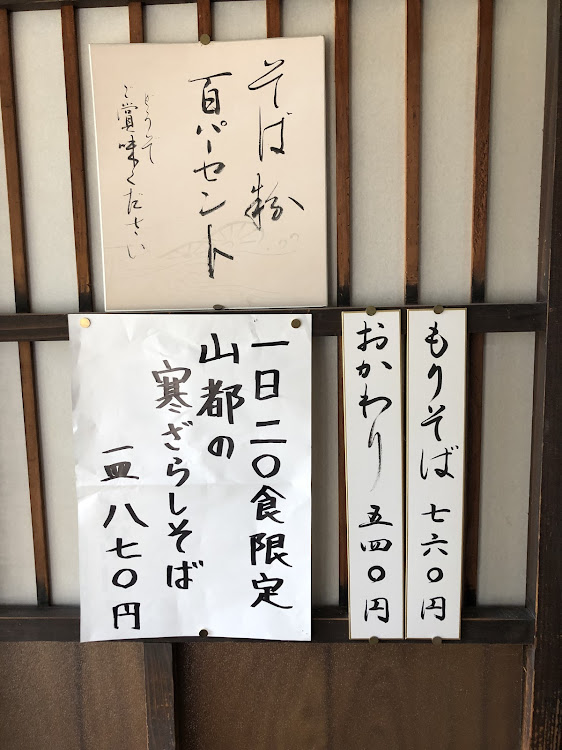 そば粉
百パーセント
どうぞ
ご賞味ください
もりそば 七六〇円
おかわり 五四〇円
一日二〇食限定
山都の
寒ざらしそば
一皿 八七〇円